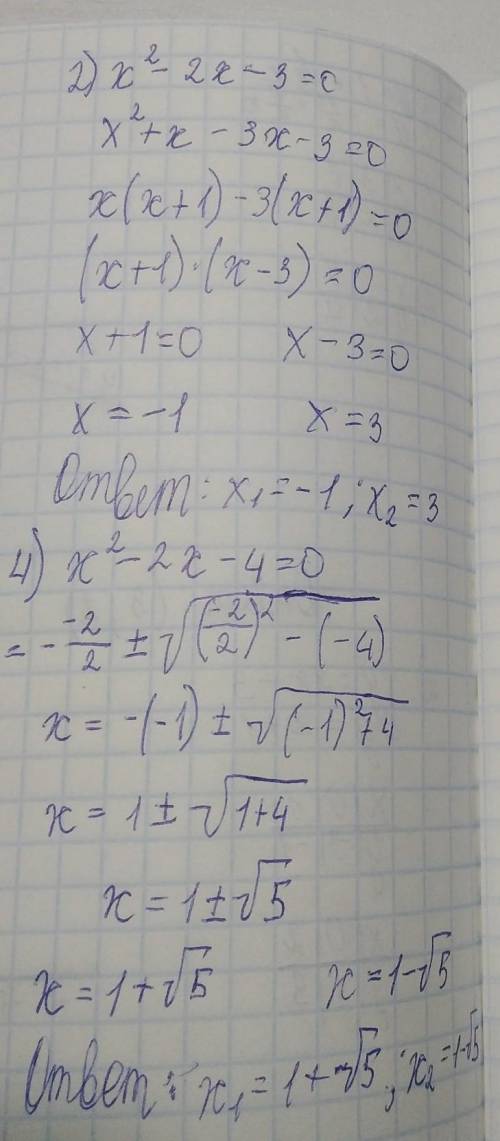 2) x² - 2x - 3 = 0
x² + x - 3x - 3 = 0
x(x+1) - 3(x+1) = 0
(x+1)·(x-3) = 0
x + 1 = 0 x - 3 = 0
x = -1 x = 3
Ответ: x₁ = -1; x₂ = 3
4) x² - 2x - 4 = 0
= - -2/2 ± √((-2/2)² - (-4))
x = -(-1) ± √((-1)² + 4)
x = 1 ± √(1+4)
x = 1 ± √5
x = 1 + √5 x = 1 - √5
Ответ: x₁ = 1 + √5; x₂ = 1 - √5